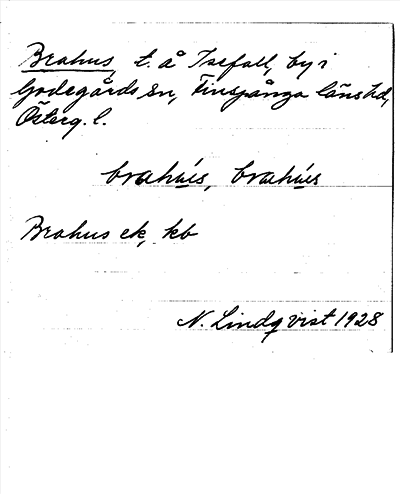 Brahus, t. å Isefall, by i
Godegårds sn, Finspånga läns hd,
Österg. l.
brahús, bræhús
Brahus ek, kb
N. Lindqvist 1928